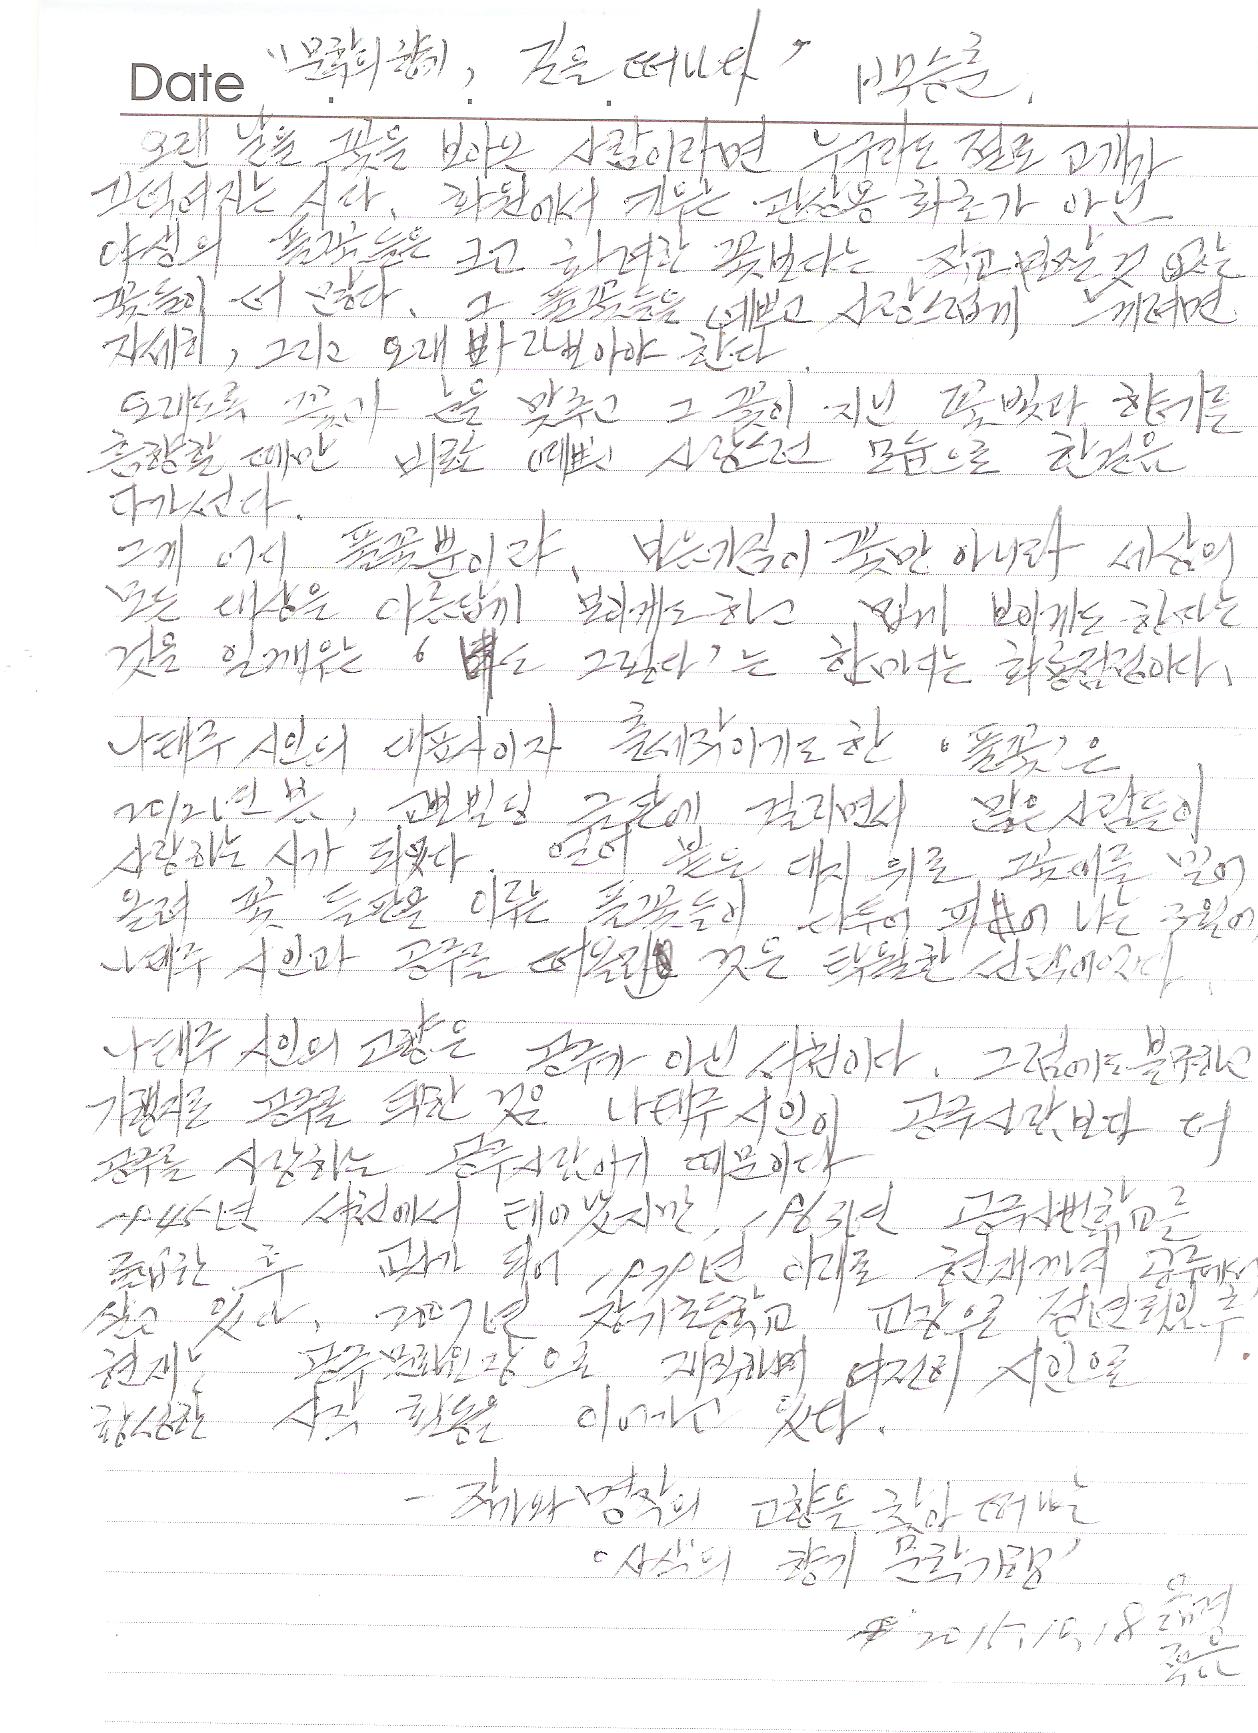 "문학의 향기, 길을 떠나다" 백승훈.
Date
오랜 날을 꽃을 보아온 사람이라면 누구라도 절로 고개가
끄덕여지는 시다. 화원에서 키우는 관상용 화초가 아닌
야생의 풀꽃들은 크고 화려한 꽃보다는 작고 보잘것 없는
꽃들이 더 많다. 그 풀꽃들을 예쁘고 사랑스럽게 느끼려면
자세히, 그리고 오래 바라보아야 한다.
오래도록 꽃과 눈을 맞추고 그 꽃이 지닌 꽃빛과 향기를
흠향할 때만 비로소 예쁘고 사랑스런 모습으로 한걸음
다가선다.
그게 어디 풀꽃뿐이랴, 보는 이의 꽃만 아니라 세상의
모든 대상을 아름답게 보이게도 하고 밉게 보이게도 한다는
것을 일깨우는 '너도 그렇다'는 한마디는 화룡점정이다.
나태주 시인의 대표시이자 출세작이기도 한 '풀꽃'은
2012년 봄, 교보빌딩 글판에 걸리면서 많은 사람들이
사랑하는 시가 되었다. 얼어 붙은 대지 위로 꽃대를 밀어
올려 꽃 들판을 이루는 풀꽃들이 다투어 피어 나는 4월에
나태주 시인과 공주를 떠올린 것은 탁월한 선택이었다.
나태주 시인의 고향은 공주가 아닌 서천이다. 그럼에도 불구하고
기행지로 공주를 택한 것은 나태주 시인이 공주사람보다 더
공주를 사랑하는 공주사람이기 때문이다
1945년 서천에서 태어났지만, 1963년 공주사범학교를
졸업한 후 교사가 되어 1979년 이래로 현재까지 공주에서
살고 있다. 2007년 장기초등학교 교장으로 정년퇴임 후
현재는 공주문화원장으로 재직하며 여전히 시인으로
왕성한 시작 활동을 이어가고 있다.
- 작가와 명작의 고향을 찾아 떠나는
'사색의 향기 문학기행'
2015.10.18
적음